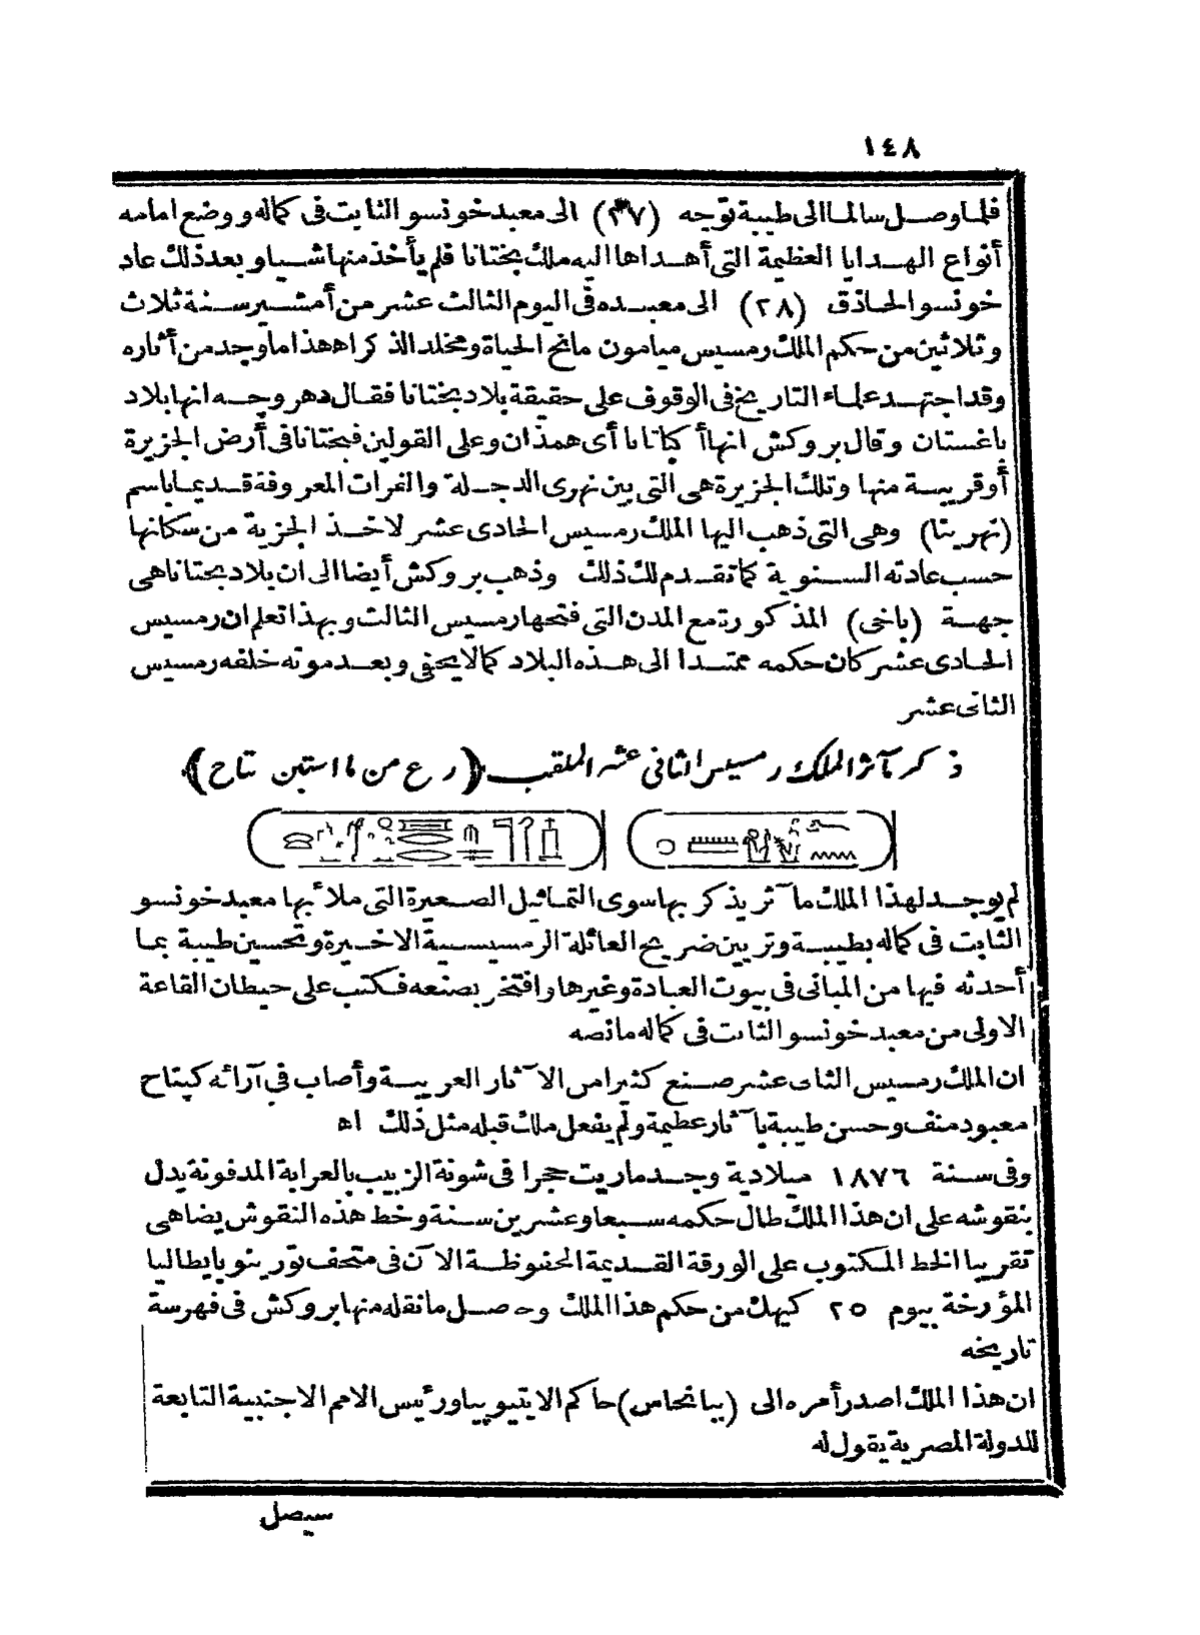 ١٤٨
فلما وصل سالما الى طيبة توجه (٢٧) الى معبد خونسو الثابت فى كماله ووضع امامه
أنواع الهدايا العظيمة التى أهداها اليه ملك بختانا فلم يأخذ منها شيا وبعد ذلك عاد
خونسو الحاذق (٢٨) الى معبده فى اليوم الثالث عشر من أمشير سنة ثلاث
وثلاثين من حكم الملك رمسيس ميامون مانح الحياة ومخلد الذكر اه هذا ما وجد من أثاره
وقد اجتهد علماء التاريخ فى الوقوف على حقيقة بلاد بختانا فقال دهر وجه انها بلاد
باغستان وقال بروكش انها أكباتانا أى همذان وعلى القولين فبختانا فى أرض الجزيرة
أوقريبة منها وتلك الجزيرة هى التى بين نهرى الدجلة والفرات المعروفة قديما باسم
(نهرينا) وهى التى ذهب اليها الملك رمسيس الحادى عشر لاخذ الجزية من سكانها
حسب عادته السنوية كما تقدم لك ذلك وذهب بروكش أيضا الى ان بلاد بختانا هى
جهة (باخى) المذكورة مع المدن التى فتحها رمسيس الثالث وبهذا تعلم ان رمسيس
الحادى عشر كان حكمه ممتدا الى هذه البلاد كما لا يخفى وبعد موته خلفه رمسيس
الثانى عشر
ذكر مآثر الملك رمسيس الثانى عشر الملقب (رع من ما استبن نتاح)
لم يوجد لهذا الملك مآثر يذكر بها سوى التماثيل الصغيرة التى ملأ بها معبد خونسو
الثابت فى كماله بطيبة وتزيين ضريح العائلة الرمسيسية الاخيرة وتحسين طيبة بما
أحدثه فيها من المبانى فى بيوت العبادة وغيرها وافتخر بصنعه فكتب على حيطان القاعة
الاولى من معبد خونسو الثابت فى كماله مانصه
ان الملك رمسيس الثانى عشر صنع كثيرا من الآثار الغريبة وأصاب فى آرائه كبتاح
معبود منف وحسن طيبة بآثار عظيمة ولم يفعل ملك قبله مثل ذلك اه
وفى سنة ١٨٧٦ ميلادية وجد ماريت حجرا فى شونة الزبيب بالعرابة المدفونة يدل
بنقوشه على ان هذا الملك طال حكمه سبعا وعشرين سنة وخط هذه النقوش يضاهى
تقريبا الخط المكتوب على الورقة القديمة المحفوظة الآن فى متحف تورينو بايطاليا
المؤرخة بيوم ٢٥ كيهك من حكم هذا الملك وحصل مانقله منها بروكش فى فهرسة
تاريخه
ان هذا الملك اصدر أمره الى (بيانحاس) حاكم الايتيوپيا ورئيس الامم الاجنبية التابعة
للدولة المصرية يقول له
سيصل